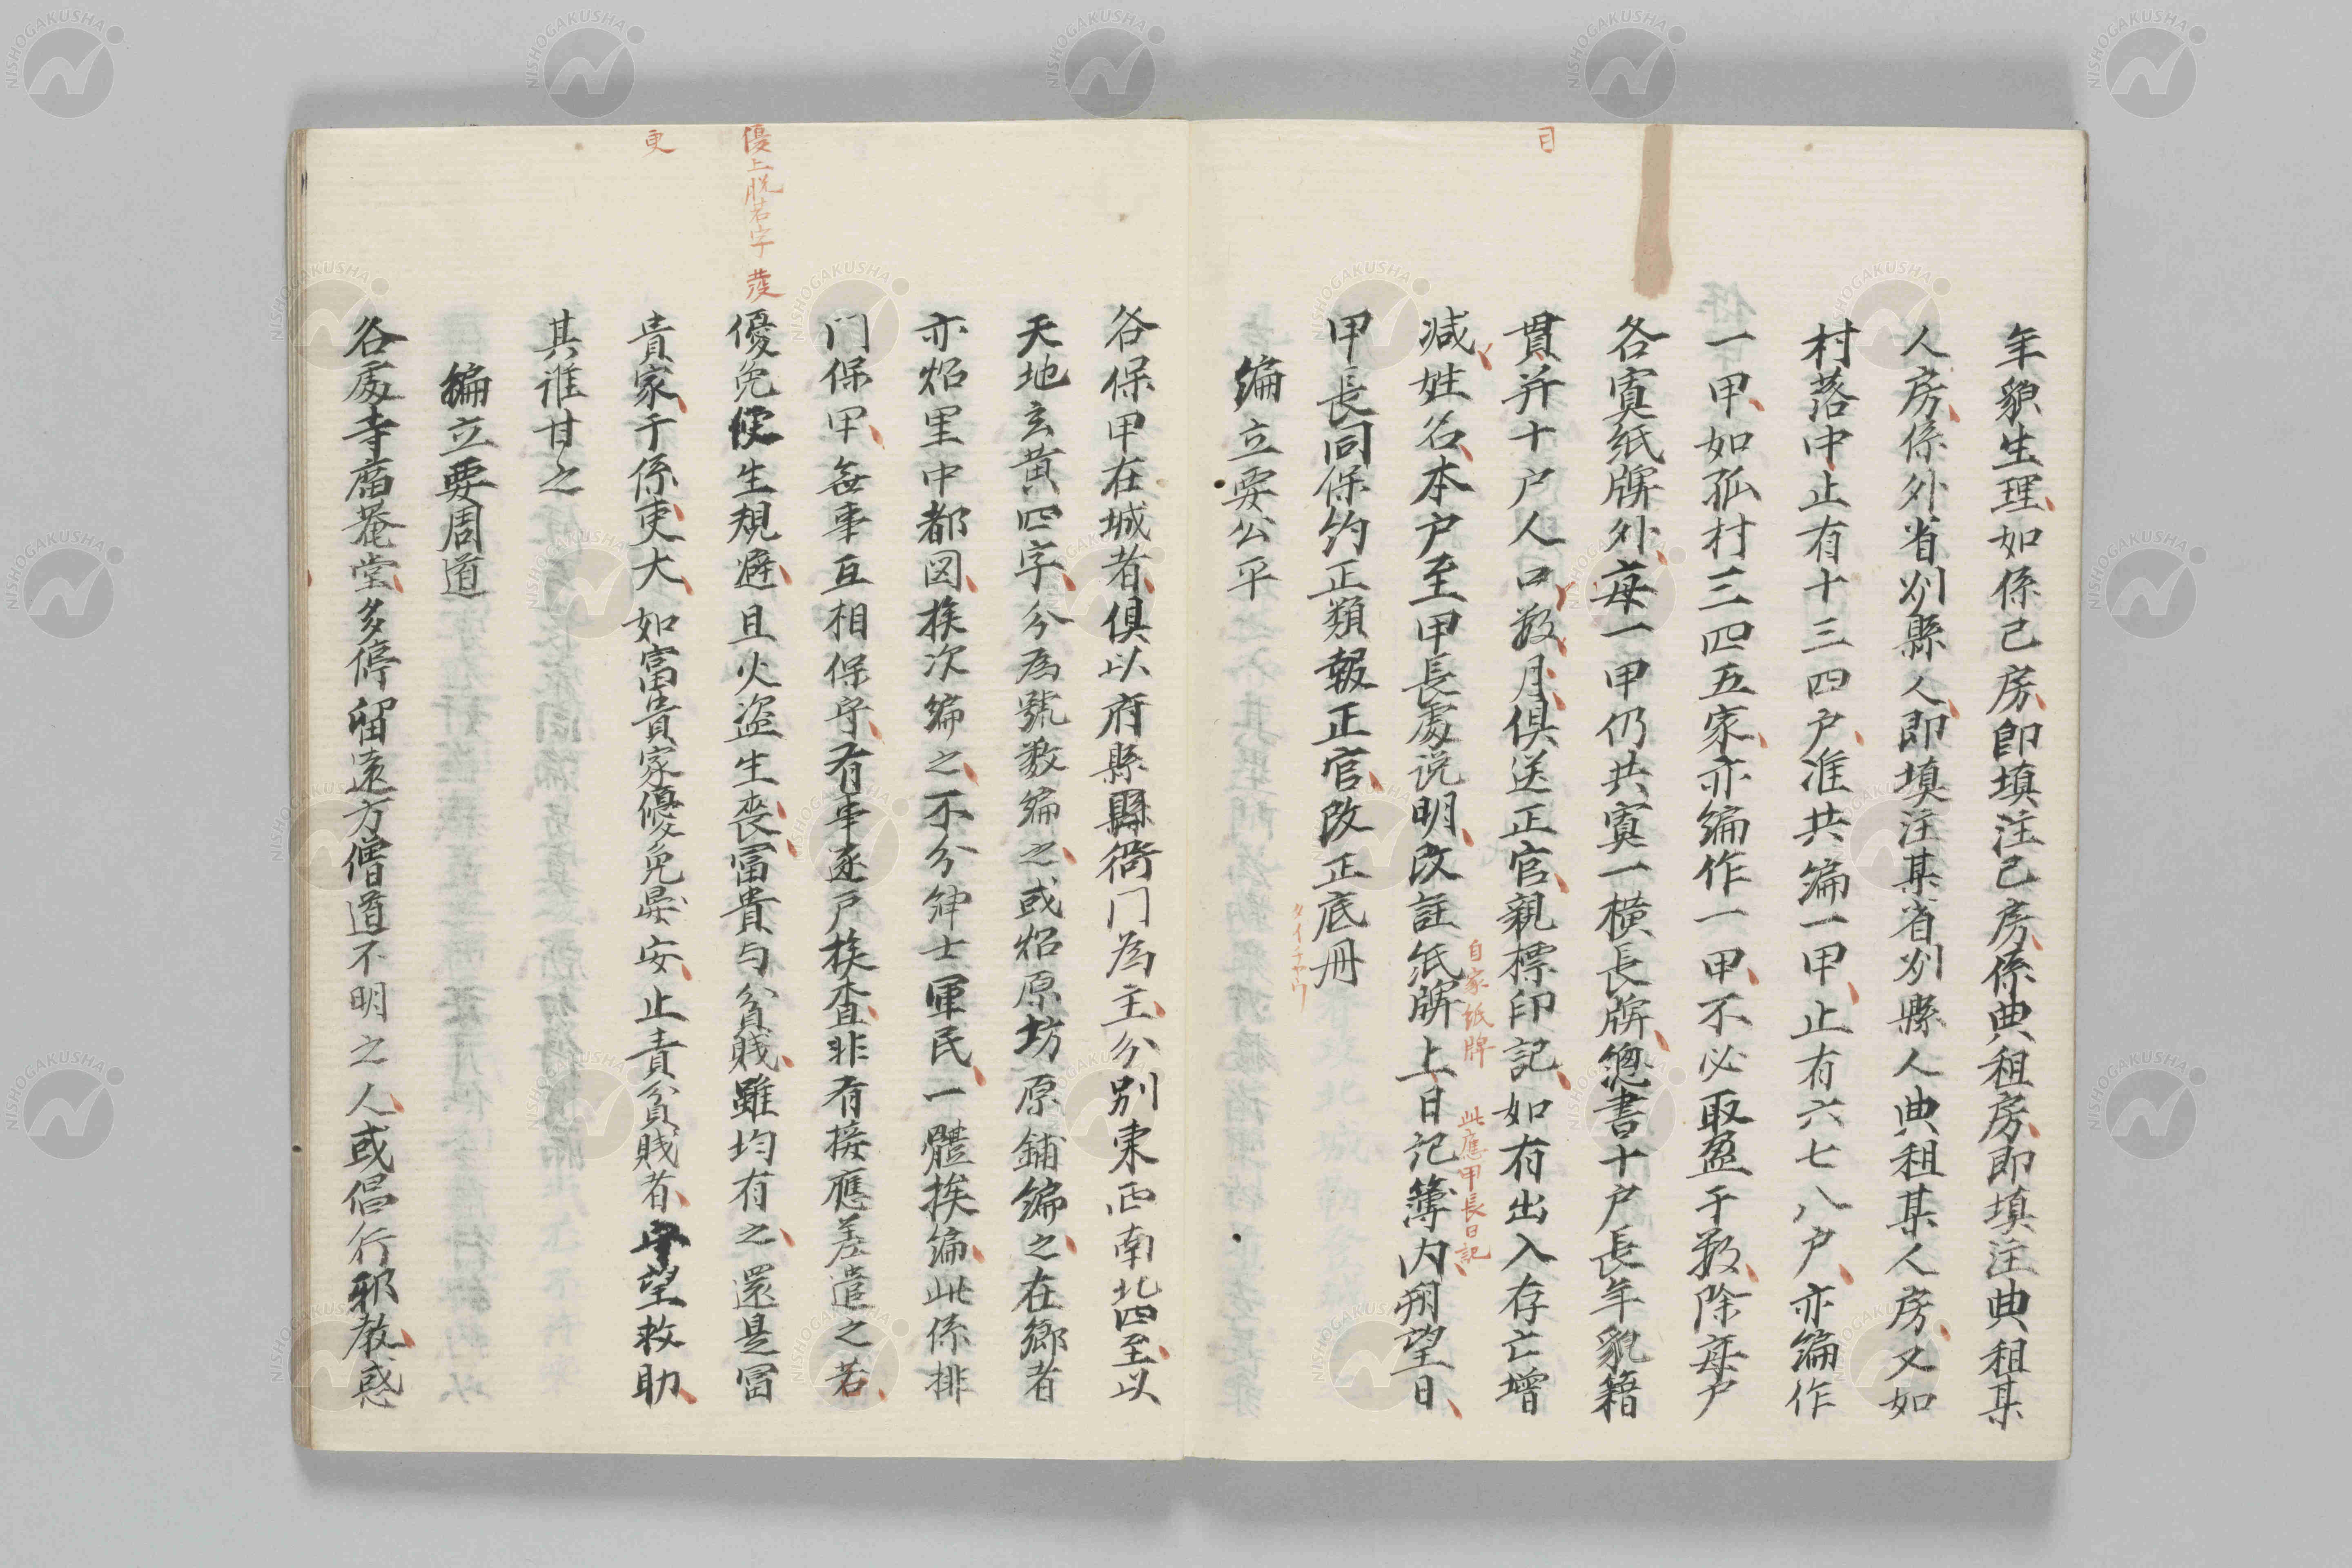 年貌生理如係己房即填注己房係典租房即填注典租某
人房係外省州縣人即填注某省州縣人典租某人房又如
村落中止有十三四户准共編一甲止有六七八户亦編作
一甲如孤村三四五家亦編作一甲不必取盈于数除每户
各寘紙牌外每一甲仍共寘一横長牌總書十户長年貌籍
目
貫并十户人口数月俱送正官親標印記如有出入存亡增
自家紙牌 此應甲長日記
减姓名本户至甲長處说明改註紙牌上日记簿内朔望日
甲長同保约正類報正官改正底冊
タイチヤウ
編立要公平
各保甲在城者俱以府縣縣衙门為主分别東西南北四至以
天地玄黄四字分為號数編之或炤原坊原鋪編之在鄉者
亦炤里中都図挨次編之不分紳士軍民一體挨編此係排
门保甲每事互相保守有事逐户挨查非有接應差遣之若
優上脱若字 發
優免便生規避且火盗生喪富貴与貧賤雖均有之還是富
更
貴家干係吏大如富貴家優免晏安止責貧賤者守望救助
其誰甘之
編立要周道
各處寺庿菴堂多停留遠方僧道不明之人或倡行邪教惑
NISHOGAKUSHA